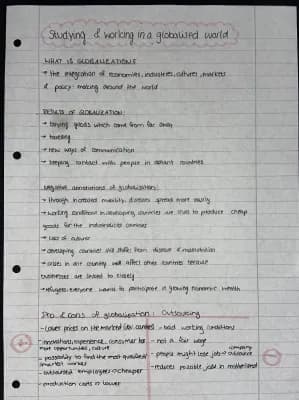 Studying & working in a globalised world
WHAT IS GLOBALIZATION?
→ the integration of economies, industries, cultures, markets
& policy-making around the world
RESULTS OF GLOBALIZATION:
→ buying goods which come from far away
→ traveling
→ new ways of communication
→ keeping contact with people in distant countries
Negative connotations of globalization:
→ through increased mobility, diseases spread more easily
→ working conditions in developing countries are bad to produce cheap
goods for the industrialized countries
→ loss of culture
→ developing countries still suffer from disease & malnutrition
→ crises in one country will affect other countries because
businesses are linked to closely
→ refugees: everyone wants to participate in growing economic wealth
Pro & cons of globalisation: Outsourcing
- lower prices on the market
- bad working conditions
- innovation, experience, consumer has
more opportunities, culture
- not a fair wage
- possibility to find the most qualified/
smartest worker
- people might lose job → company outsource
- outsourced employees → cheaper
- reduces possible job in motherland
- production costs is lower